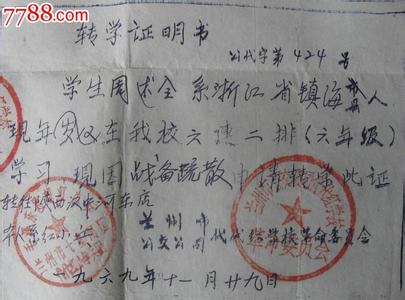 7788.com
转学证明书
公代字第424号
学生周述全系浙江省镇海县人
现年 岁 在我校六连二排(六年级)
学习 现因战备疏散申请转学 此证
转往陕西汉中河东店
兰州市
学校革命委员会
一九六九年十一月廿九日